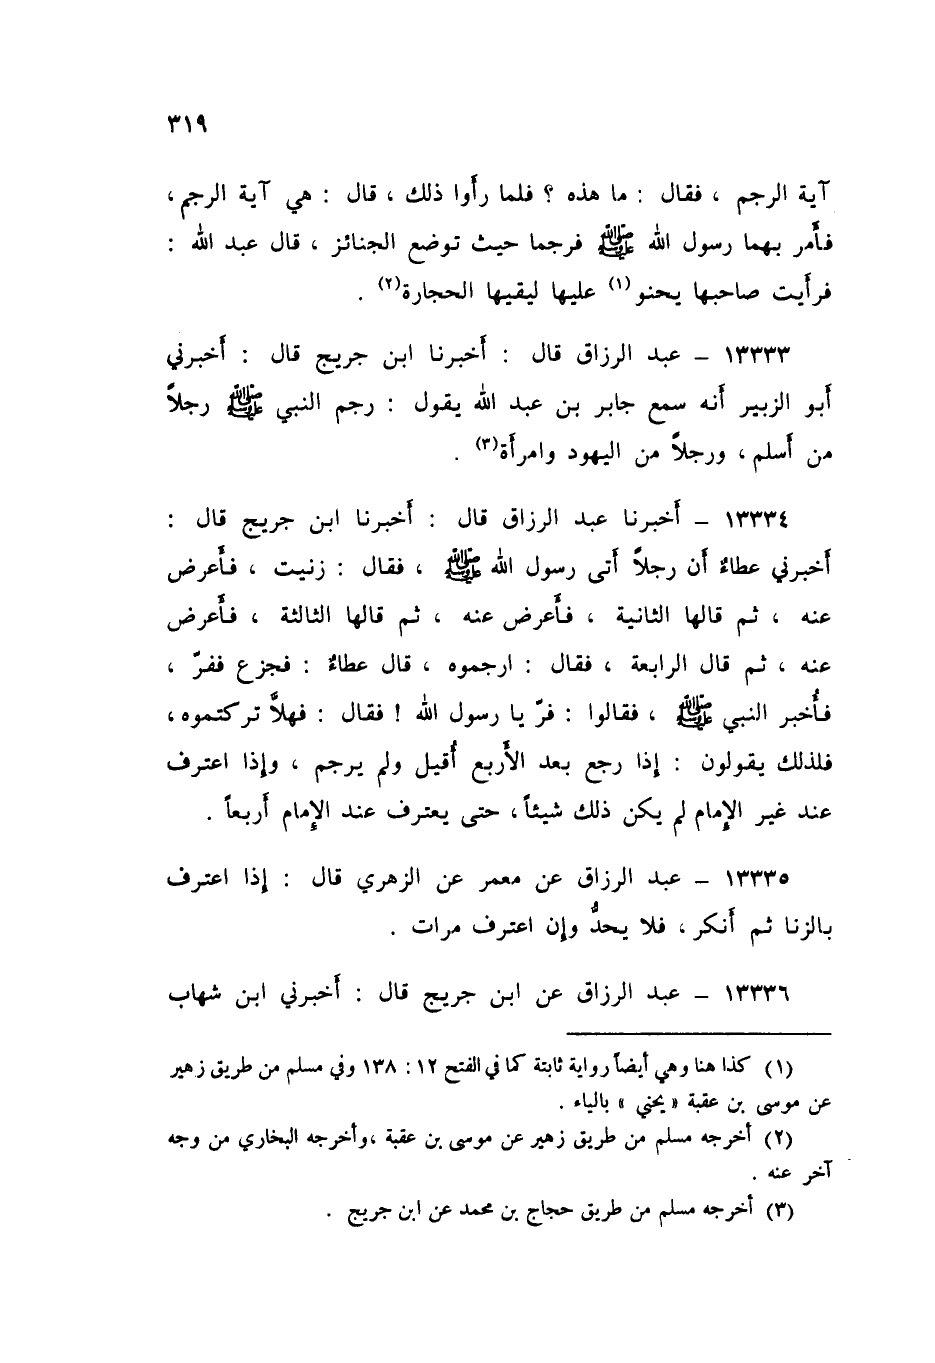 ٣١٩
آية الرجم ، فقال : ما هذه ؟ فلما رأوا ذلك ، قال : هي آية الرجم ،
فأمر بهما رسول الله ﷺ فرجما حيث توضع الجنائز ، قال عبد الله :
فرأيت صاحبها يحنو (١) عليها ليقيها الحجارة(٢) .
١٣٣٣٣ – عبد الرزاق قال : أخبرنا ابن جريج قال : أخبرني
أبو الزبير أنه سمع جابر بن عبد الله يقول : رجم النبي ﷺ رجلاً
من أسلم ، ورجلاً من اليهود وامرأة(٣) .
١٣٣٣٤ – أخبرنا عبد الرزاق قال : أخبرنا ابن جريج قال :
أخبرني عطاءٌ أن رجلاً أتى رسول الله ﷺ ، فقال : زنيت ، فأعرض
عنه ، ثم قالها الثانية ، فأعرض عنه ، ثم قالها الثالثة ، فأعرض
عنه ، ثم قال الرابعة ، فقال : ارجموه ، قال عطاءٌ : فجزع ففرّ ،
فأُخبر النبي ﷺ ، فقالوا : فرّ يا رسول الله ! فقال : فهلاَّ تركتموه ،
فلذلك يقولون : إذا رجع بعد الأَربع أُقيل ولم يرجم ، وإذا اعترف
عند غير الإِمام لم يكن ذلك شيئاً ، حتى يعترف عند الإِمام أَربعاً .
١٣٣٣٥ – عبد الرزاق عن معمر عن الزهري قال : إذا اعترف
بالزنا ثم أَنكر ، فلا يحدُّ وإن اعترف مرات .
١٣٣٣٦ – عبد الرزاق عن ابن جريج قال : أَخبرني ابن شهاب
(١) كذا هنا وهي أيضاً رواية ثابتة كما في الفتح ١٢ : ١٣٨ وفي مسلم من طريق زهير
عن موسى بن عقبة « يحني » بالياء .
(٢) أخرجه مسلم من طريق زهير عن موسى بن عقبة ،وأخرجه البخاري من وجه
آخر عنه .
(٣) أخرجه مسلم من طريق حجاج بن محمد عن ابن جريج .